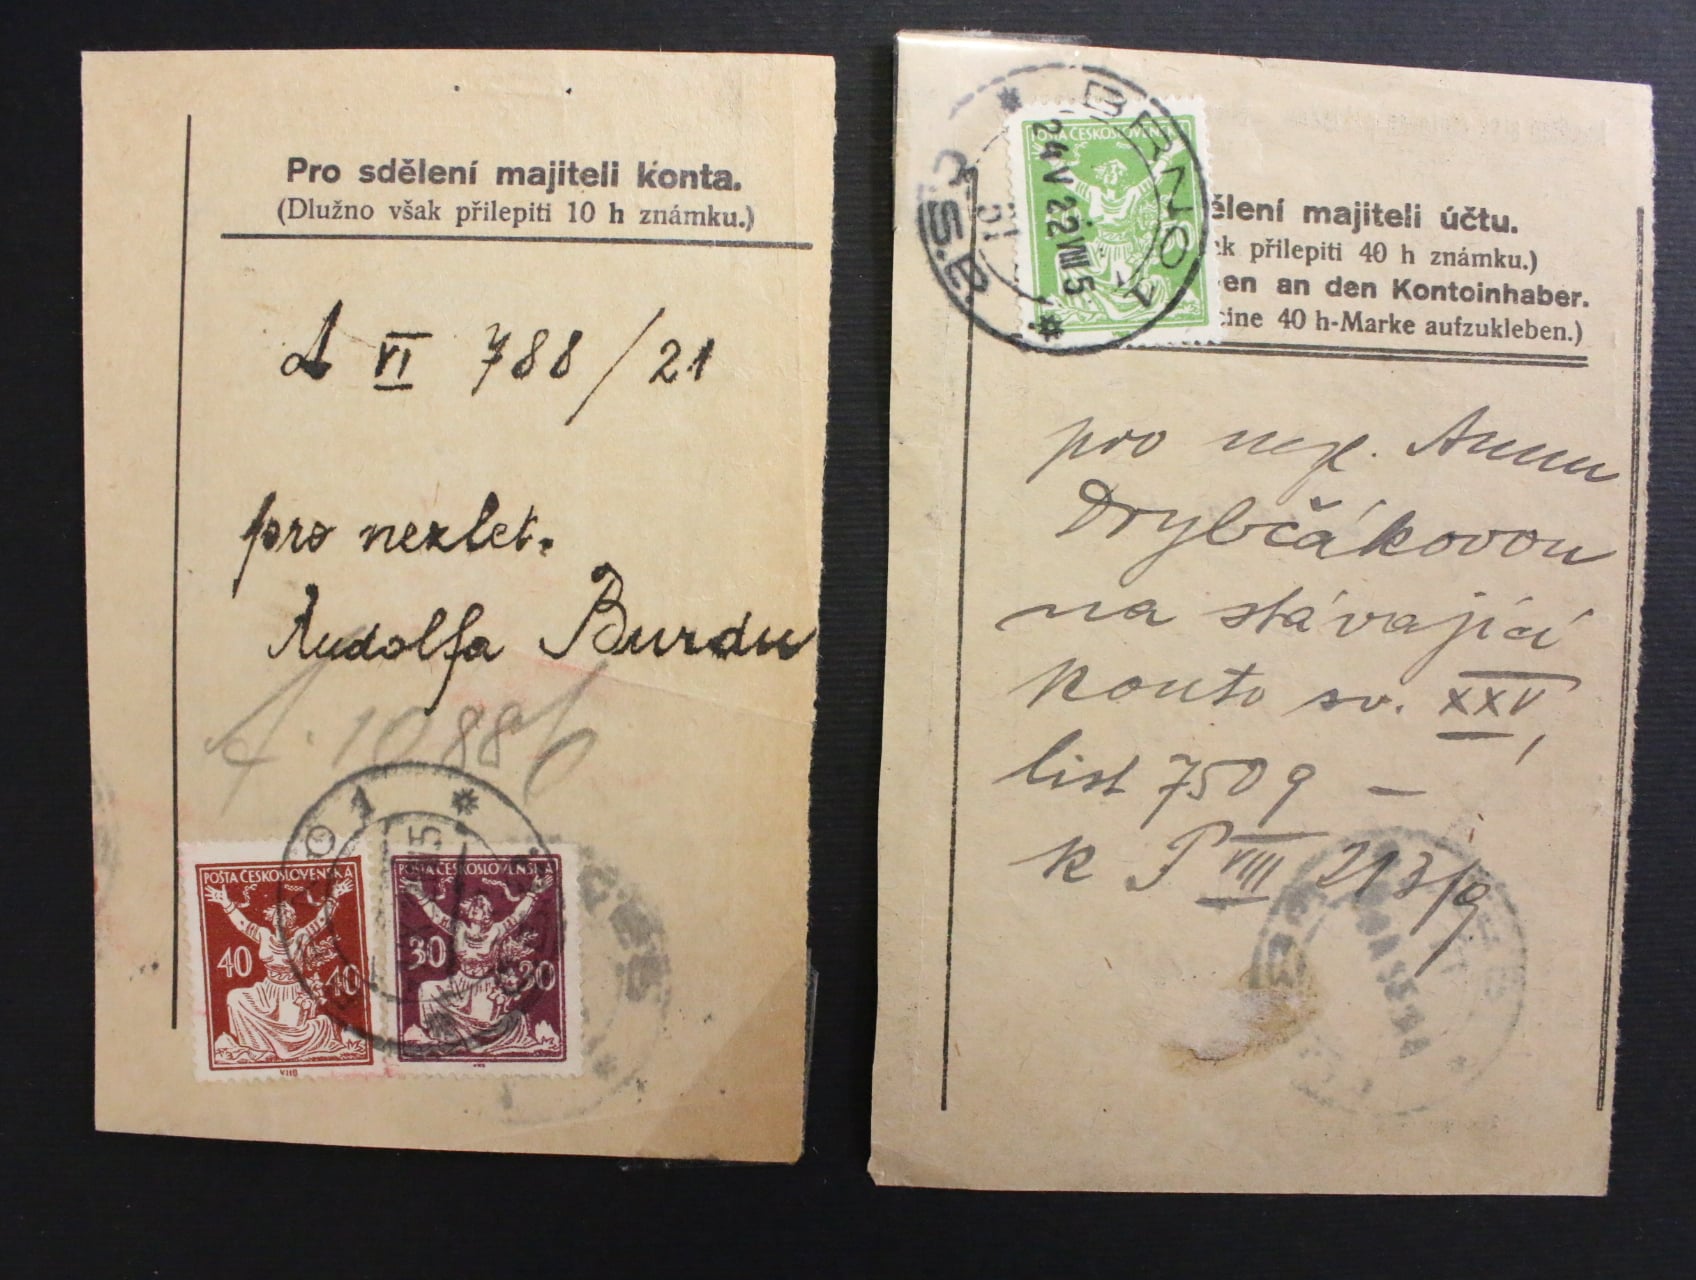 Pro sdělení majiteli konta.
(Dlužno však přilepiti 10 h známku.)
VI 788/21
pro nezlet.
Rudolfa Burdu
1088
1
POŠTA ČESKOSLOVENSKÁ
40 40
POŠTA ČESKOSLOVENSKÁ
30 30
BRNO 1
24 V 22 VIII 5
Č.S.P.
POŠTA ČESKOSLOVENSKÁ
ělení majiteli účtu.
k přilepiti 40 h známku.)
en an den Kontoinhaber.
eine 40 h-Marke aufzukleben.)
pro nezl. Annu
Drybčákovou
na stávající
konto sv. XXV,
list 7509 –
k P VIII 213/9